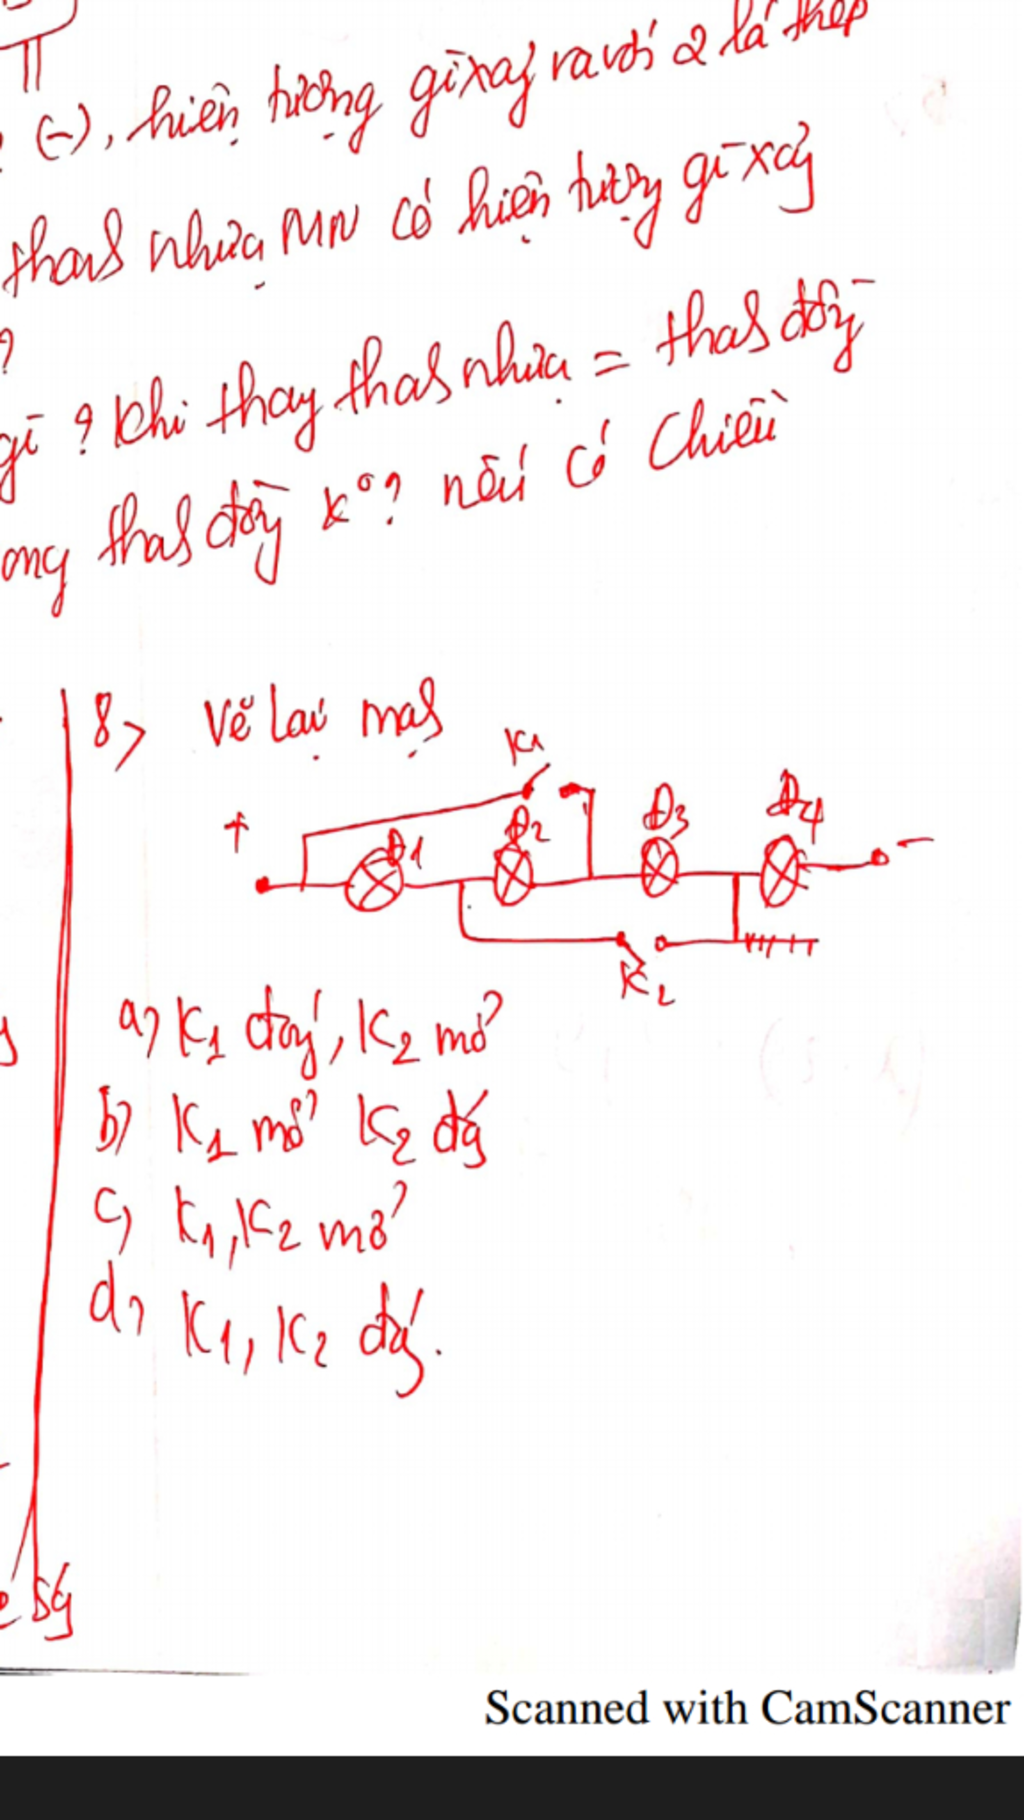 (-), hiện tượng gì xảy ra với 2 lá thép
thanh nhựa MN có hiện tượng gì xảy
?
gì ? Khi thay thanh nhựa = thanh đồng
ong thanh đồng ko? nếu có Chiều
8> Vẽ lại mạch
K1
+ Đ1 Đ2 Đ3 Đ4 -
K2
a) K1 đóng, K2 mở
b) K1 mở K2 đóng
c) K1, K2 mở
d) K1, K2 đóng.
Scanned with CamScanner